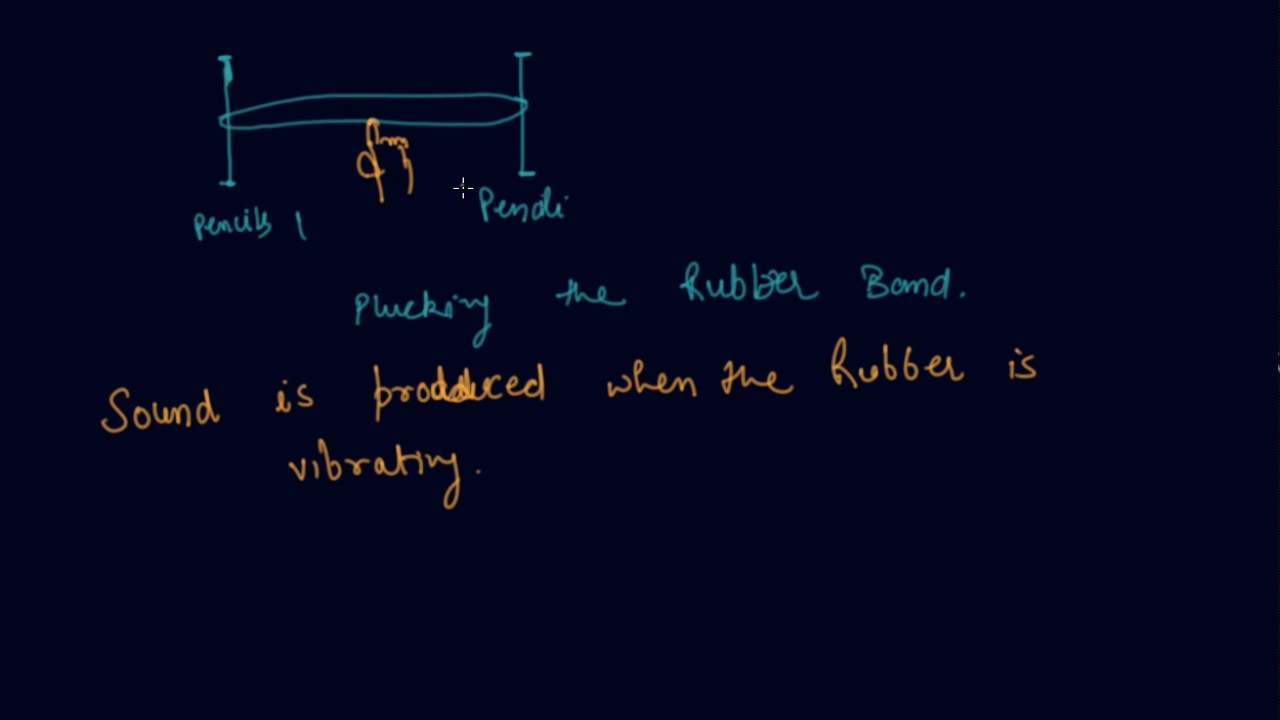 Pencils 1
Pencli
Plucking the Rubber Band.
Sound is produced when the Rubber is
vibrating.